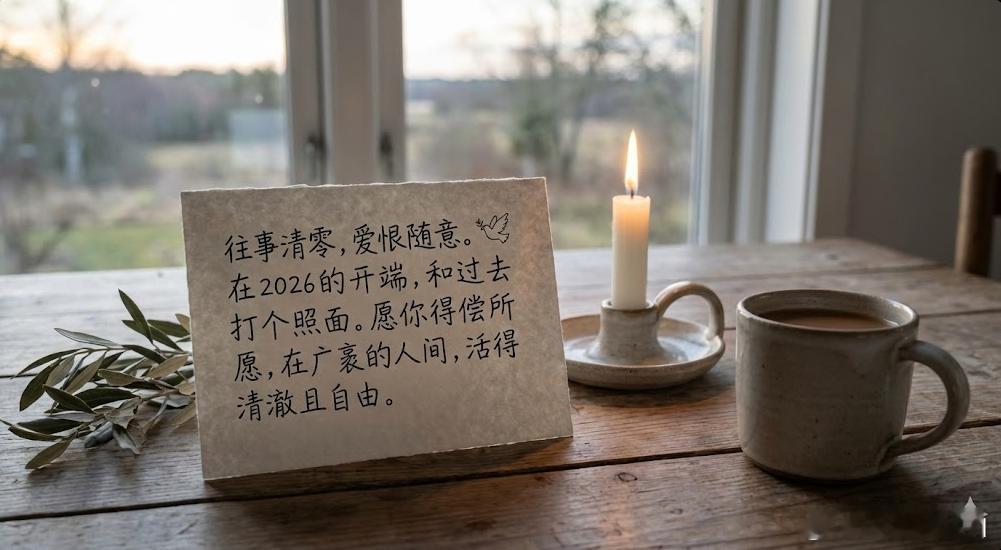 往事清零,爱恨随意。
在2026的开端,和过去
打个照面。愿你得偿所
愿,在广袤的人间,活得
清澈且自由。